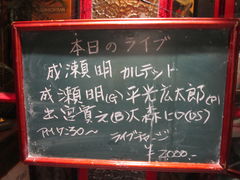 本日のライブ
成瀬明 カルテット
成瀬明(G) 平光広太郎(P)
出宮寛之(B) 大森ヒロ(DS)
PM 7:30〜 ライブチャージ
¥2,000.-